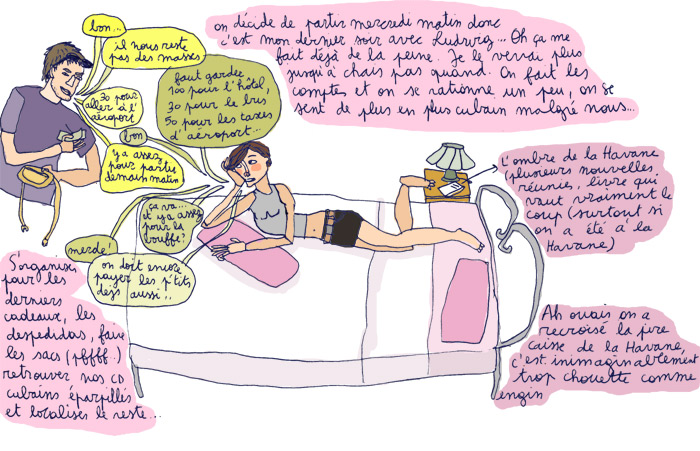 on décide de partir mercredi matin donc
c'est mon dernier soir avec Ludwig... Oh ça me
fait déjà de la peine. Je le verai plus
jusqu'à chais pas quand. On fait les
comptes et on se rationne un peu, on se
sent de plus en plus cubain malgré nous...
bon...
il nous reste
pas des masses
faut garder
100 pour l'hôtel,
30 pour le bus
50 pour les taxes
d'aéroport...
30 pour
aller à l'
aéroport
bon
y'a assez
pour partir
demain matin
ça va...
et y a assez
pour la
bouffe?
merde!
on doit encore
payer les p'tits
dejs aussi...
L'ombre de la Havane
(plusieurs nouvelles
réunies, livre qui
vaut vraiment le
coup (surtout si
on a été à la
Havane)
S'organiser
pour les
derniers
cadeaux, les
despedidas, faire
les sacs (pffff.)
retrouver nos CD
cubains éparpillés
et localiser le reste...
Ah ouais on a
recroisé la pire
caisse de la Havane,
c'est inimaginablement
trop chouette comme
engin